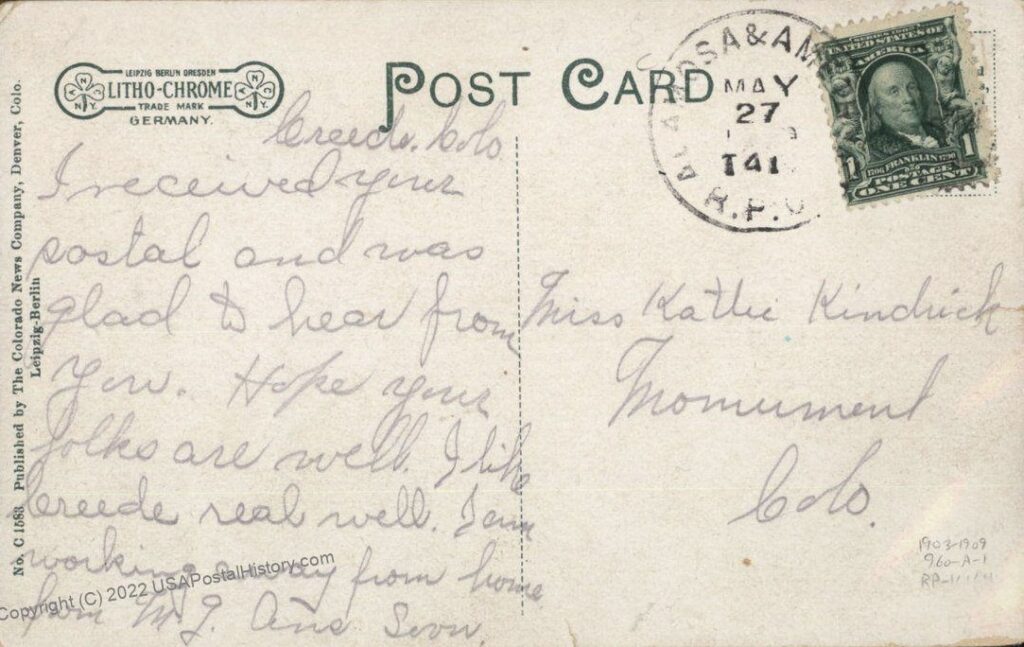 LEIPZIG BERLIN DRESDEN
LITHO-CHROME
TRADE MARK
GERMANY.
N.Y.
N.Y.
POST CARD
MOSA & AM
MAY
27
T41
R.P.O
UNITED STATES OF
AMERICA
1706 FRANKLIN 1790
POSTAGE
1 1
ONE CENT
No. C 1583 Published by The Colorado News Company, Denver, Colo.
Leipzig-Berlin
Creede. Colo
I received your
postal and was
glad to hear from
you. Hope your
folks are well. I like
Creede real well. I am
working away from home
Ans Soon.
Miss Kattie Kindrick
Monument
Colo.
1903-1909
960-A-1
Copyright (C) 2022 USAPostalHistory.com